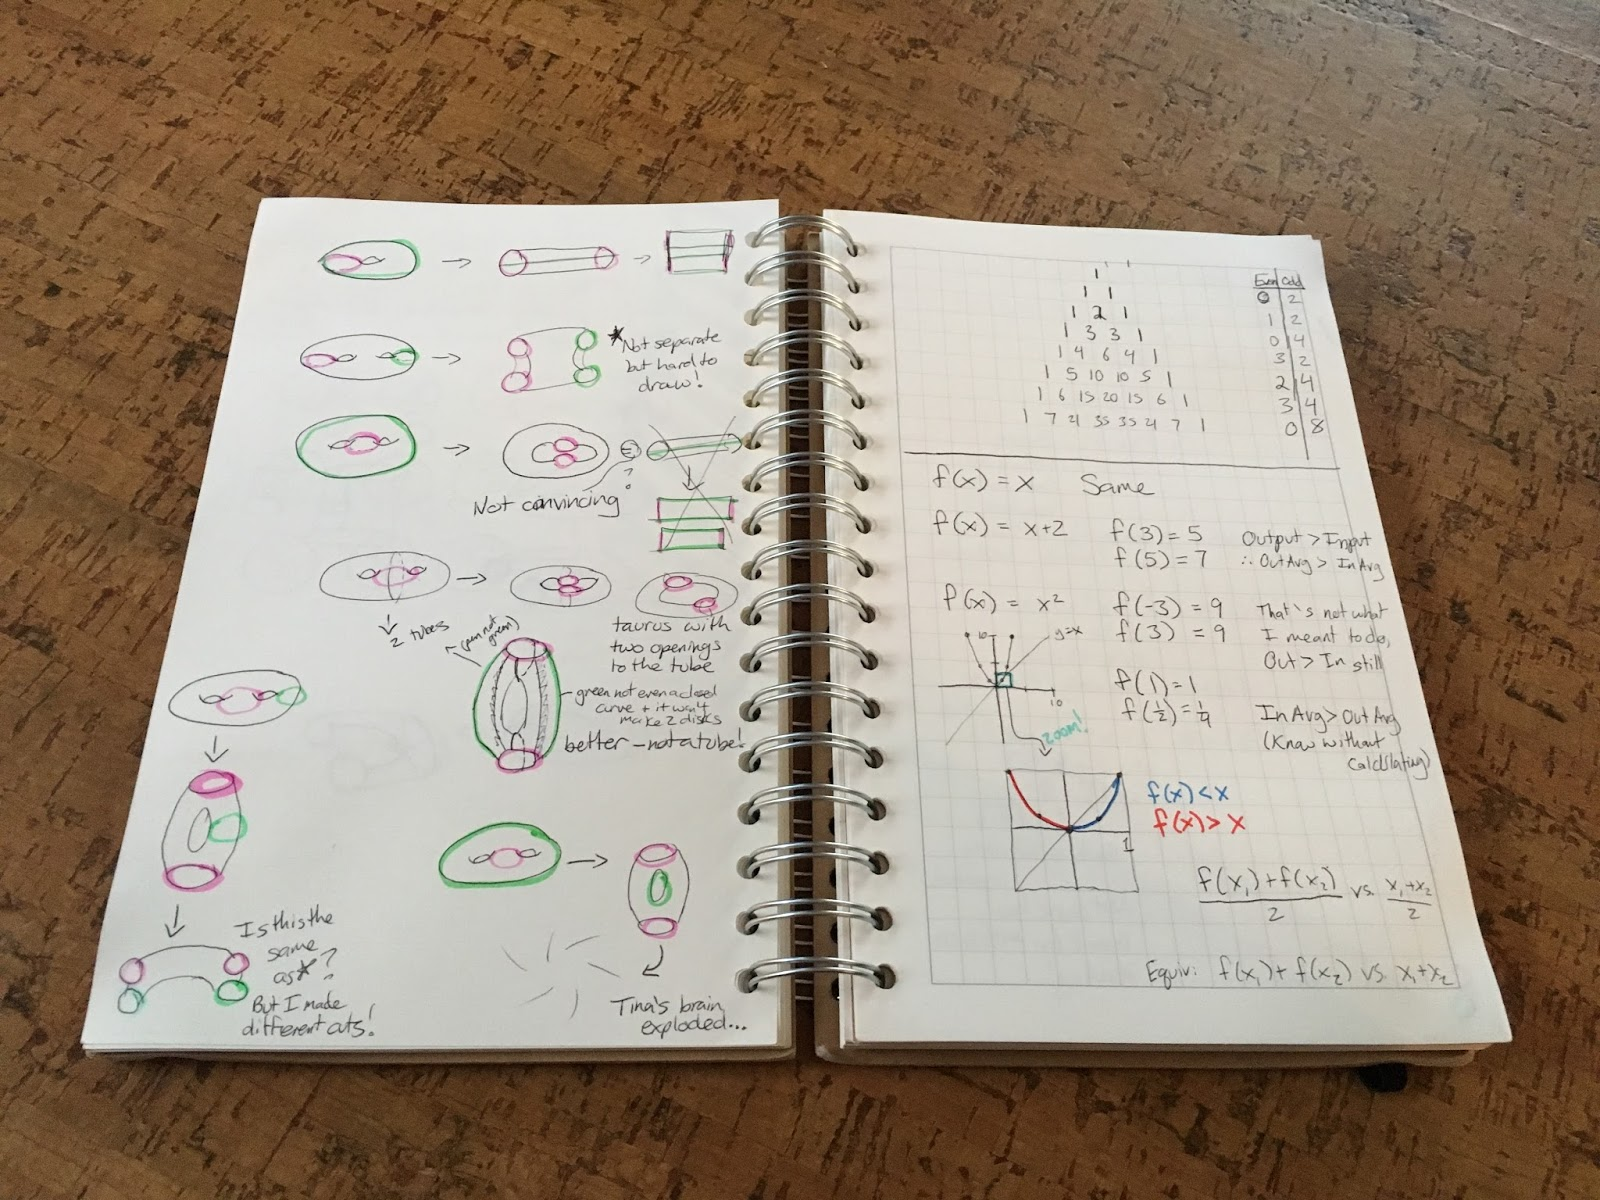 *Not separate
but hard to
draw!
?
Not convincing
2 tubes
(pen not
green)
taurus with
two openings
to the tube
green not even a closed
curve + it won't
make 2 disks
better - not a tube!
Is this the
same
as *?
But I made
different cuts!
Tina's brain
exploded...
1
1 1
1 2 1
1 3 3 1
1 4 6 4 1
1 5 10 10 5 1
1 6 15 20 15 6 1
1 7 21 35 35 21 7 1
Even Odd
0 2
1 2
0 4
3 2
2 4
3 4
0 8
f(x) = x Same
f(x) = x+2 f(3) = 5 Output > Input
f(5) = 7 ∴ OutAvg > InAvg
f(x) = x² f(-3) = 9 That's not what
f(3) = 9 I meant to do,
Out > In still
10 y=x
10
f(1) = 1
f(½) = ¼ InAvg > OutAvg
(Know without
calculating)
zoom!
f(x) < x
f(x) > x
1
f(x₁)+f(x₂)/2 vs. x₁+x₂/2
Equiv: f(x₁) + f(x₂) vs. x₁+x₂